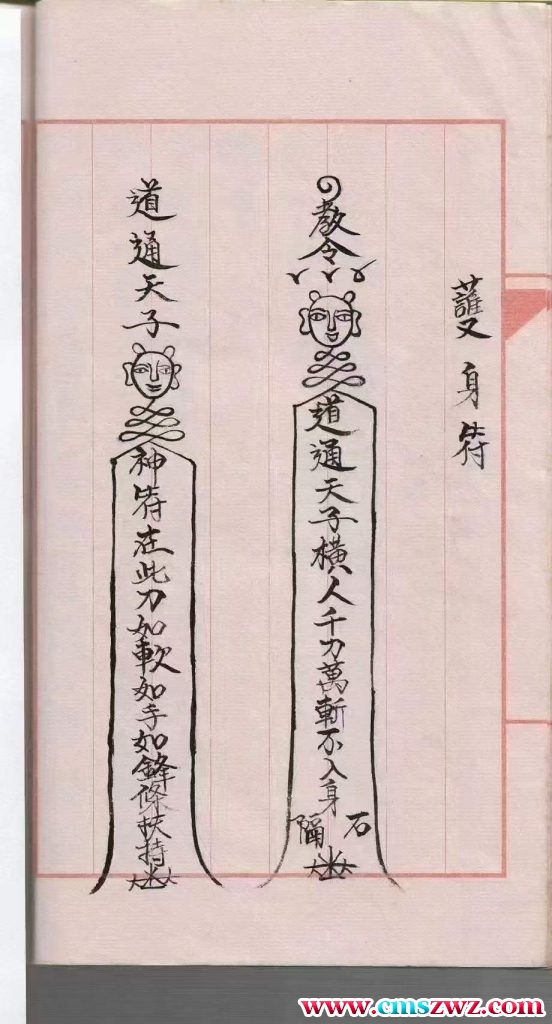 護身符
教令
道通天子橫人千刀萬斬不入身
石
隔
道通天子
神符在此刀如軟如手如鋒條扶持
www.cmszwz.com